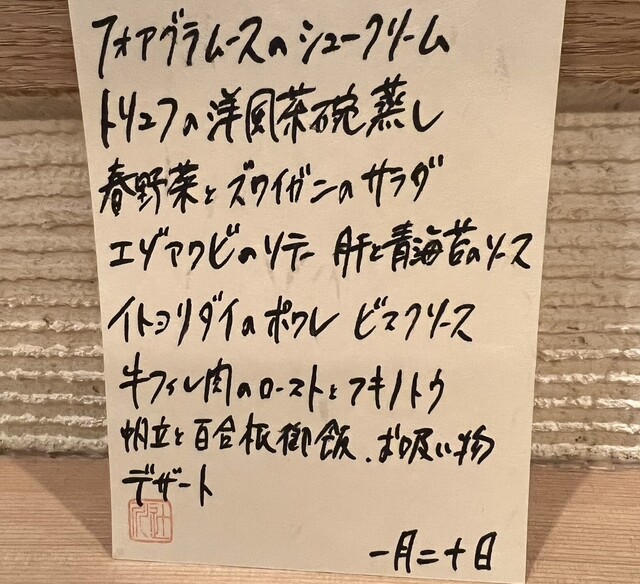 フォアグラムースのシュークリーム
トリュフの洋風茶碗蒸し
春野菜とズワイガニのサラダ
エゾアワビのソテー 肝と青海苔のソース
イトヨリダイのポワレ ビスクソース
牛フィレ肉のローストとフキノトウ
帆立と百合根御飯、お吸い物
デザート
一月二十日